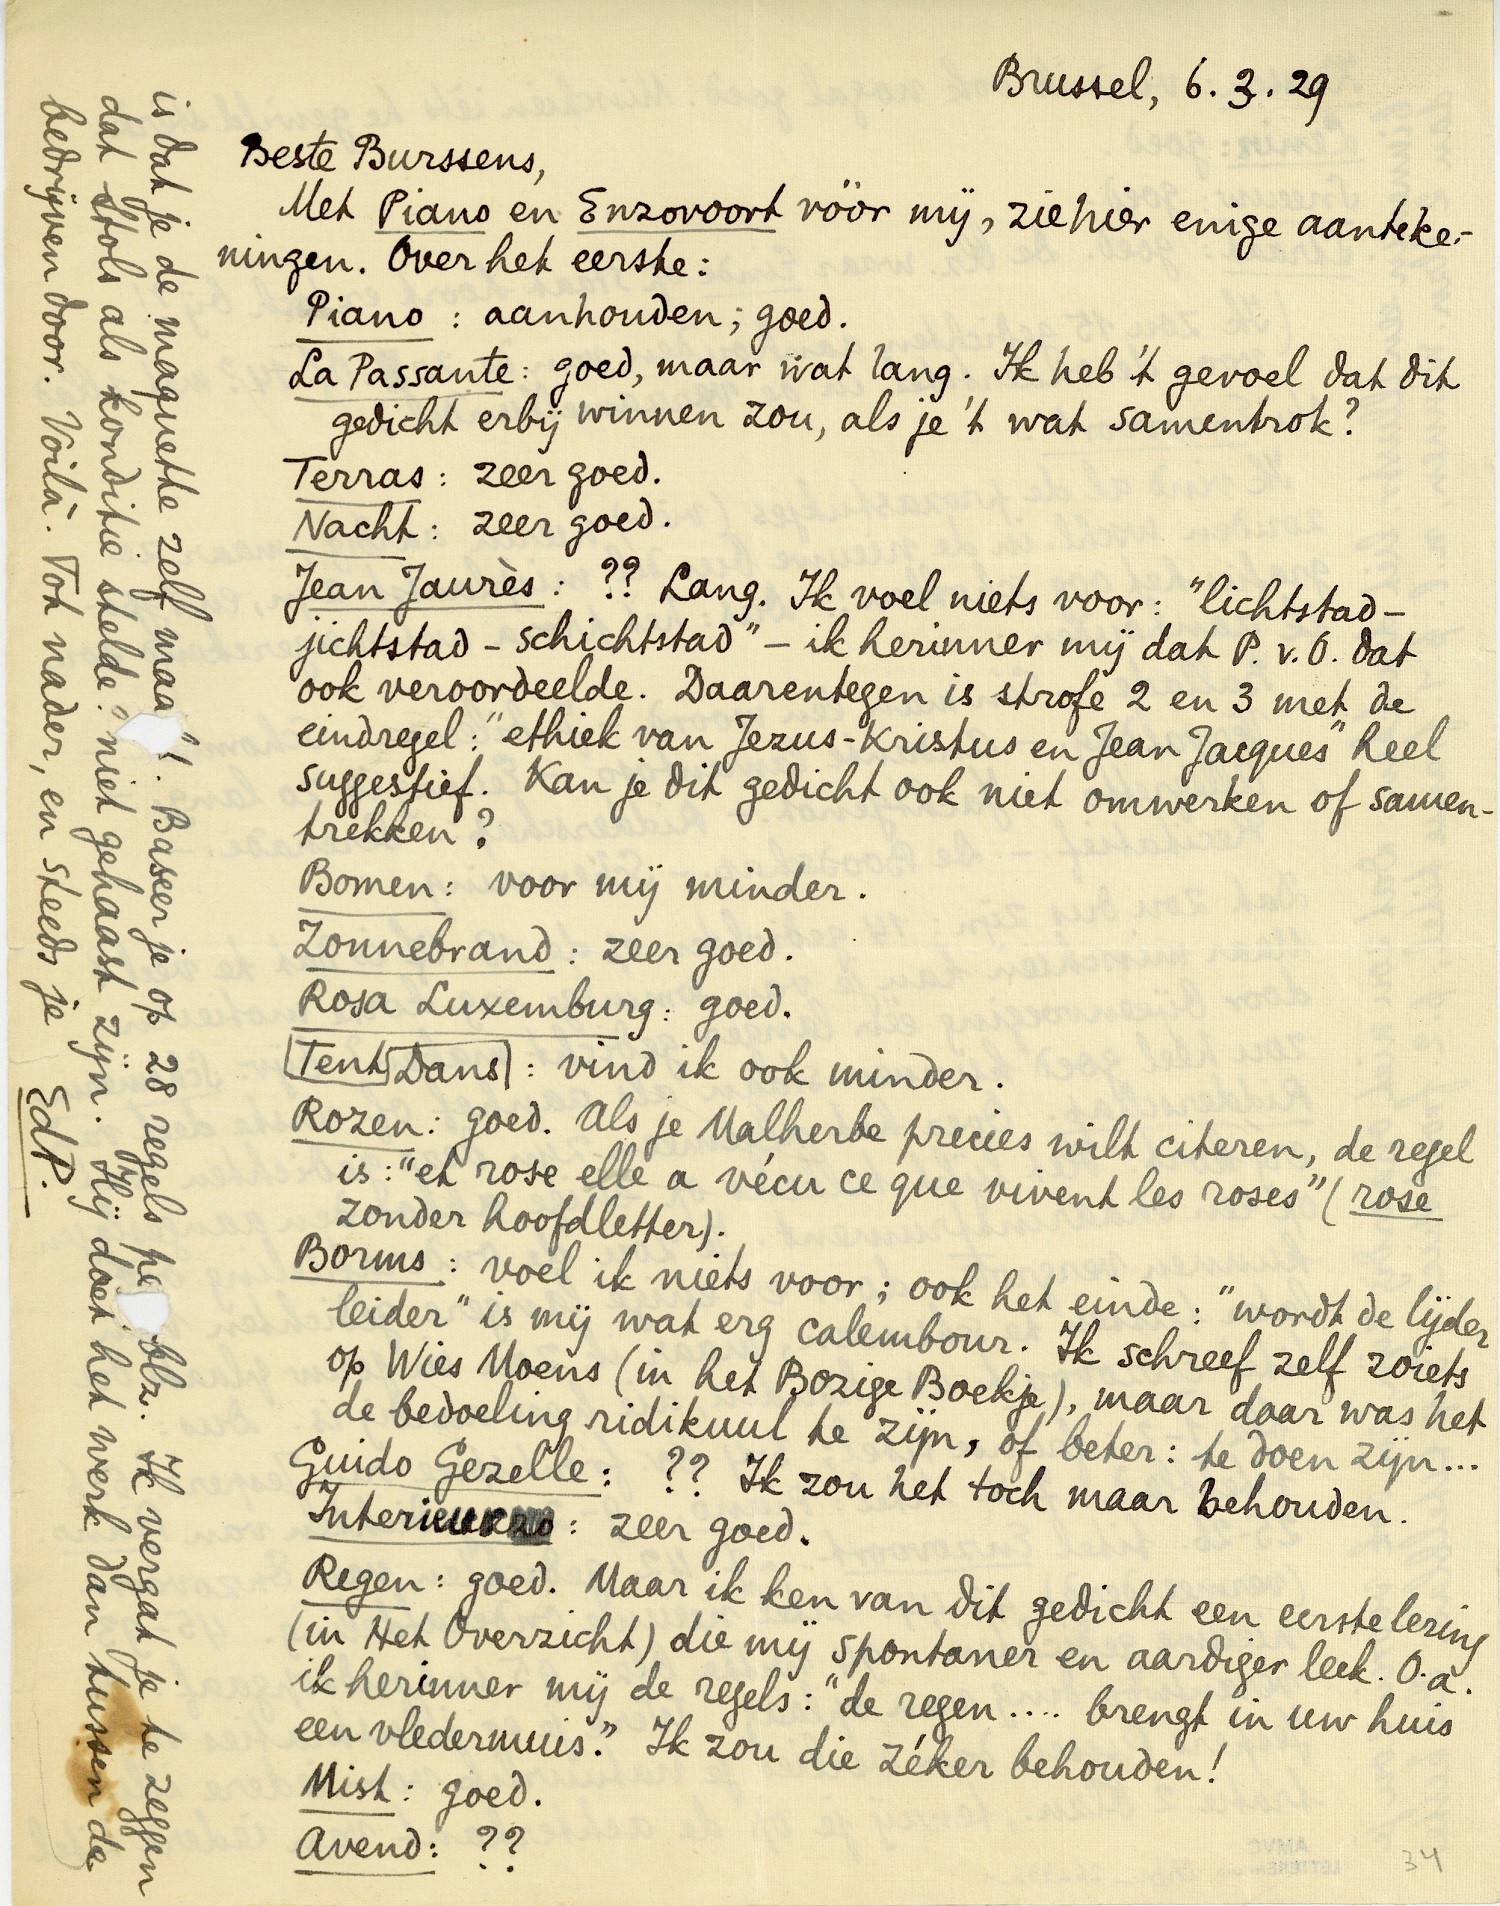 Brussel, 6.3.29
Beste Burssens,
Met Piano en Enzovoort vöör mij, ziehier enige aanteke-
ningen. Over het eerste:
Piano : aanhouden; goed.
La Passante: goed, maar wat lang. Ik heb 't gevoel dat dit
gedicht erbij winnen zou, als je 't wat samentrok?
Terras: zeer goed.
Nacht: zeer goed.
Jean Jaurès: ?? Lang. Ik voel niets voor: "lichtstad-
jichtstad - schichtstad" - ik herinner mij dat P. v. O. dat
ook veroordeelde. Daarentegen is strofe 2 en 3 met de
eindregel: "ethiek van Jezus-Kristus en Jean Jacques" heel
suggestief. Kan je dit gedicht ook niet omwerken of samen-
trekken?
Bomen: voor mij minder.
Zonnebrand: zeer goed.
Rosa Luxemburg: goed.
Tent Dans: vind ik ook minder.
Rozen: goed. Als je Malherbe precies wilt citeren, de regel
is: "et rose elle a vécu ce que vivent les roses" (rose
zonder hoofdletter).
Borms: voel ik niets voor; ook het einde: "wordt de lijder
leider" is mij wat erg calembour. Ik schreef zelf zoiets
op Wies Moens (in het Bozige Boekje), maar daar was het
de bedoeling ridikuul te zijn, of beter: te doen zijn...
Guido Gezelle: ?? Ik zou het toch maar behouden.
Interieur: zeer goed.
Regen: goed. Maar ik ken van dit gedicht een eerste lezing
(in Het Overzicht) die mij spontaner en aardiger leek. O.a.
ik herinner mij de regels: "de regen .... brengt in uw huis
een vledermuis." Ik zou die zéker behouden!
Mist: goed.
Avend: ??
34
is dat je de maquette zelf maa t. Baseer je op 28 regels pe blz. Ik vergat je te zeggen
dat Stols als konditie stelde: niet gehaast zijn. Hij doet het werk dan tussen de
bedrijven door. Voilà. Tot nader, en steeds je
EdP.